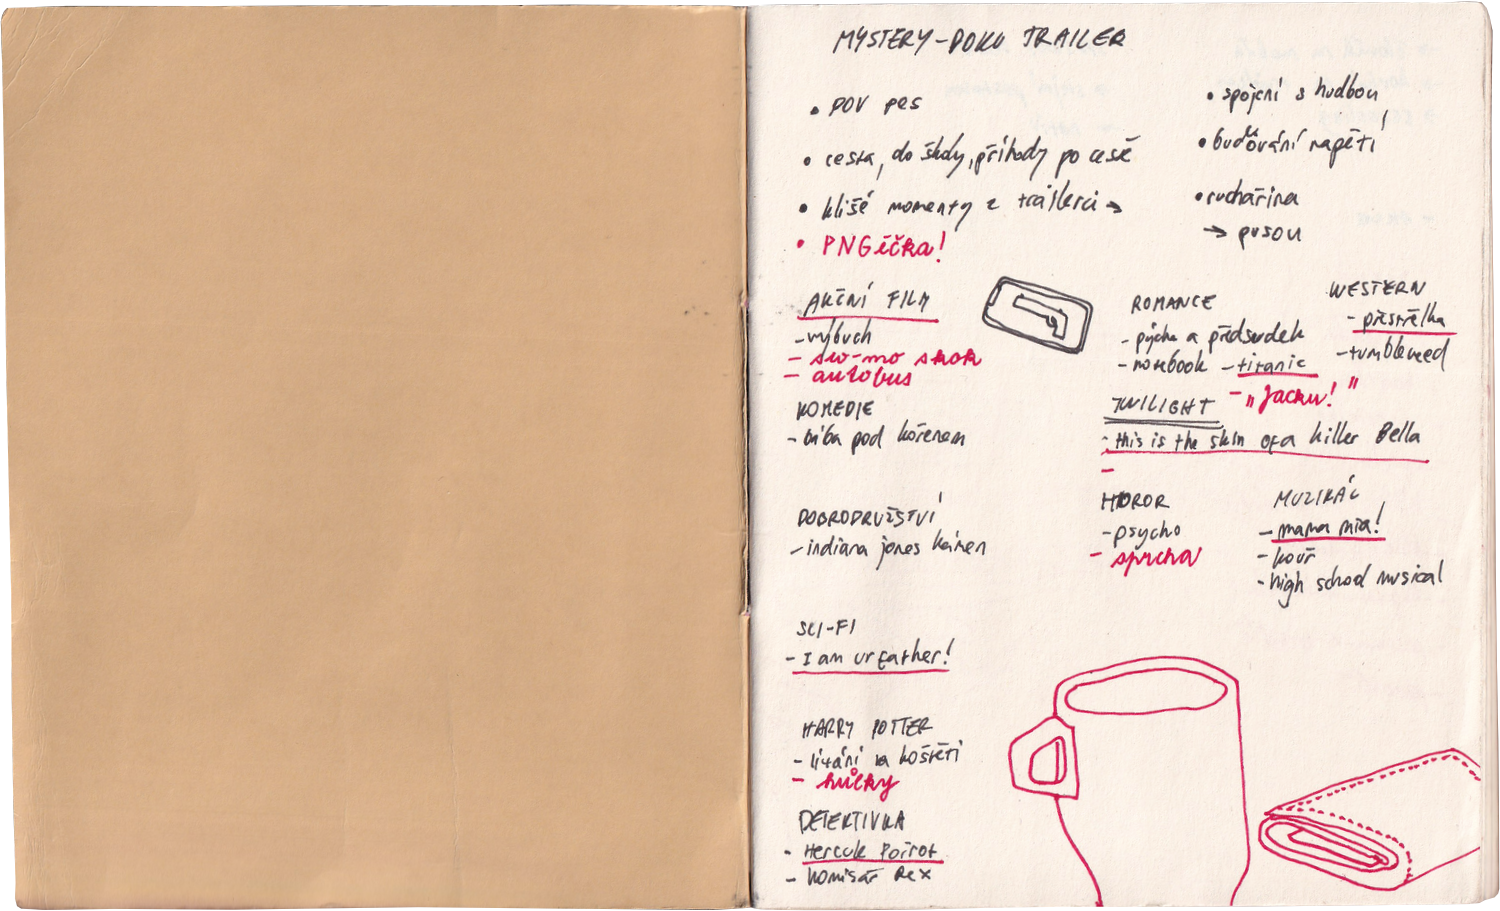 MYSTERY-DOKU TRAILER
• POV pes
• cesta, do školy, příhody po cestě
• klišé momenty z trailerů →
• PNGéčka!
• spojení s hudbou
• budování napětí
• kuchařina
→ pusou
AKČNÍ FILM
- výbuch
- slo-mo skok
- autobus
KOMEDIE
- bába pod kořenem
DOBRODRUŽSTVÍ
- indiana jones kámen
SCI-FI
- I am ur father!
HARRY POTTER
- lítání na koštěti
- hůlky
DETEKTIVKA
- Hercule Poirot
- komisař Rex
ROMANCE
- pýcha a předsudek
- notebook - titanic
- „Jacku!"
WESTERN
- přestřelka
- tumbleweed
TWILIGHT
- this is the skin of a killer Bella
-
HOROR
- psycho
- sprcha
MUZIKÁL
- mama mia!
- kouř
- high school musical